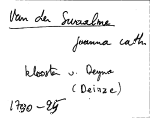 Van der Swaalme
joanna cath.
klooster v. Deyna
(Deinze)
1730-25